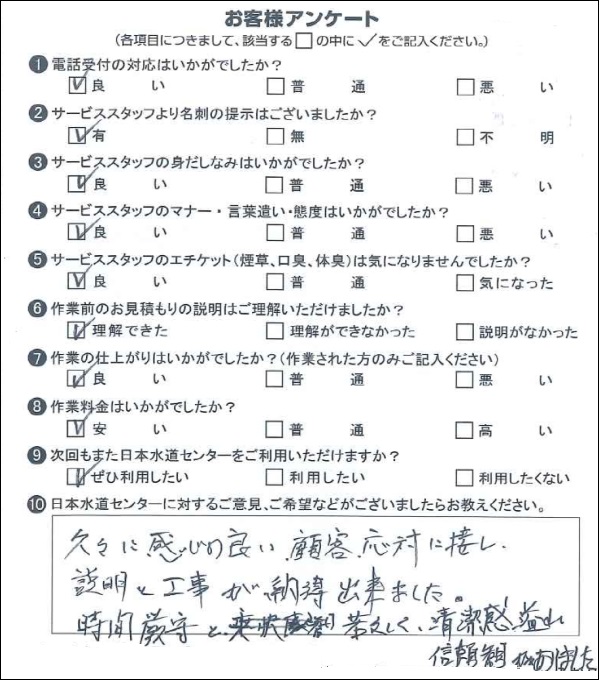 お客様アンケート
(各項目につきまして、該当する□の中に✓をご記入ください。)
❶電話受付の対応はいかがでしたか?
☑良い □普通 □悪い
❷サービススタッフより名刺の提示はございましたか?
☑有 □無 □不明
❸サービススタッフの身だしなみはいかがでしたか?
☑良い □普通 □悪い
❹サービススタッフのマナー・言葉遣い・態度はいかがでしたか?
☑良い □普通 □悪い
❺サービススタッフのエチケット(煙草、口臭、体臭)は気になりませんでしたか?
☑良い □普通 □気になった
❻作業前のお見積もりの説明はご理解いただけましたか?
☑理解できた □理解ができなかった □説明がなかった
❼作業の仕上がりはいかがでしたか?(作業された方のみご記入ください)
☑良い □普通 □悪い
❽作業料金はいかがでしたか?
☑安い □普通 □高い
❾次回もまた日本水道センターをご利用いただけますか?
☑ぜひ利用したい □利用したい □利用したくない
❿日本水道センターに対するご意見、ご希望などがございましたらお教えください。
久々に感じの良い顧客応対に接し、
説明と工事が納得出来ました。
時間厳守と 若々しく、清潔感溢れ
信頼観がありました